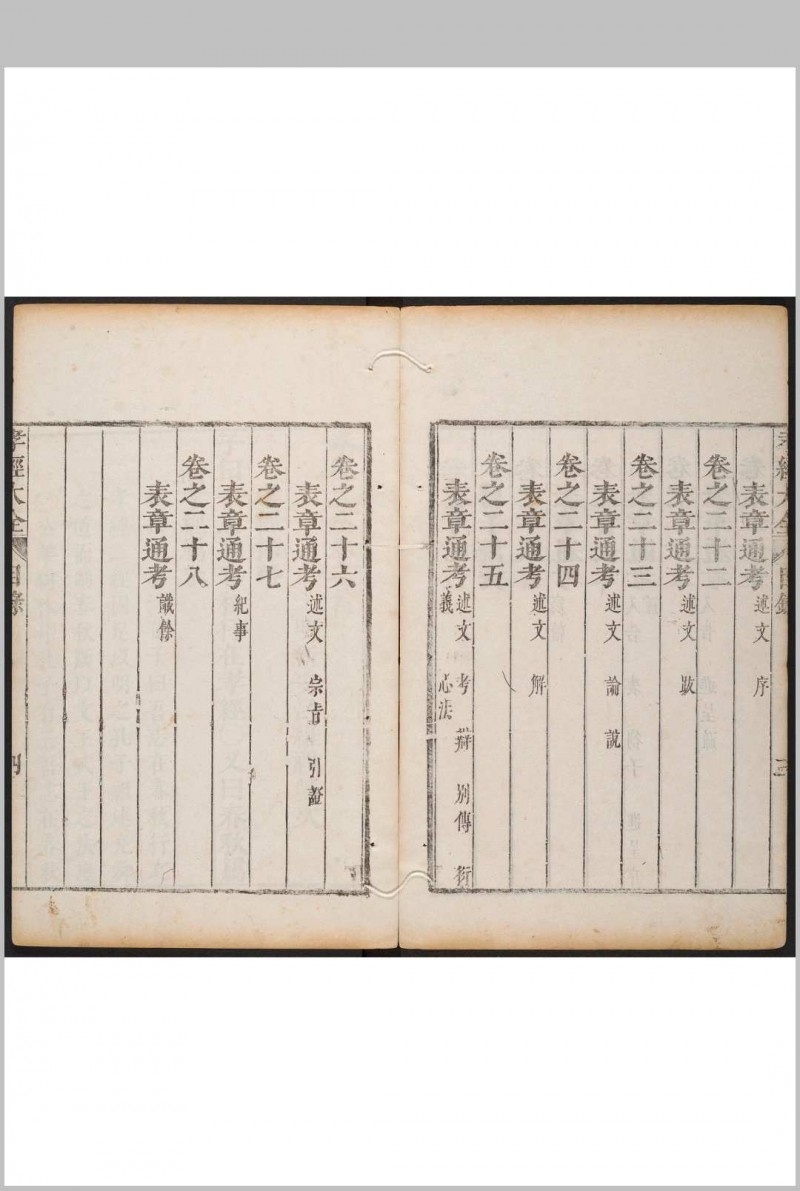 表章通考 述文 序
卷之二十二
表章通考 述文 跋
卷之二十三
表章通考 述文 論 說
卷之二十四
表章通考 述文 解
卷之二十五
表章通考 述文 考 辯 別傳 衍義 心法
孝經大全 目錄 三
卷之二十六
表章通考 述文 宗旨 引證
卷之二十七
表章通考 紀事
卷之二十八
表章通考 識餘
孝經大全 目錄 四